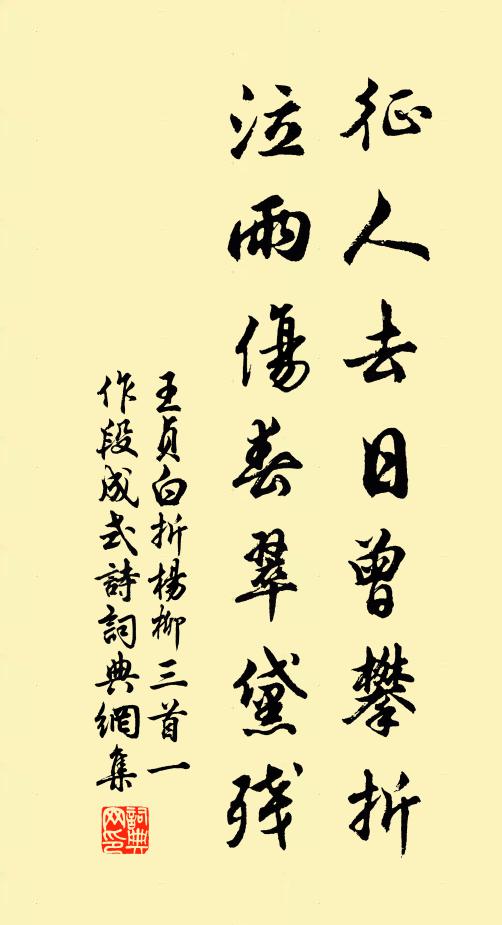 征人去日曾攀折
泣雨傷春翠黛殘
王貞白折楊柳三首一
作段成式詩詞典網集
詞典
网印